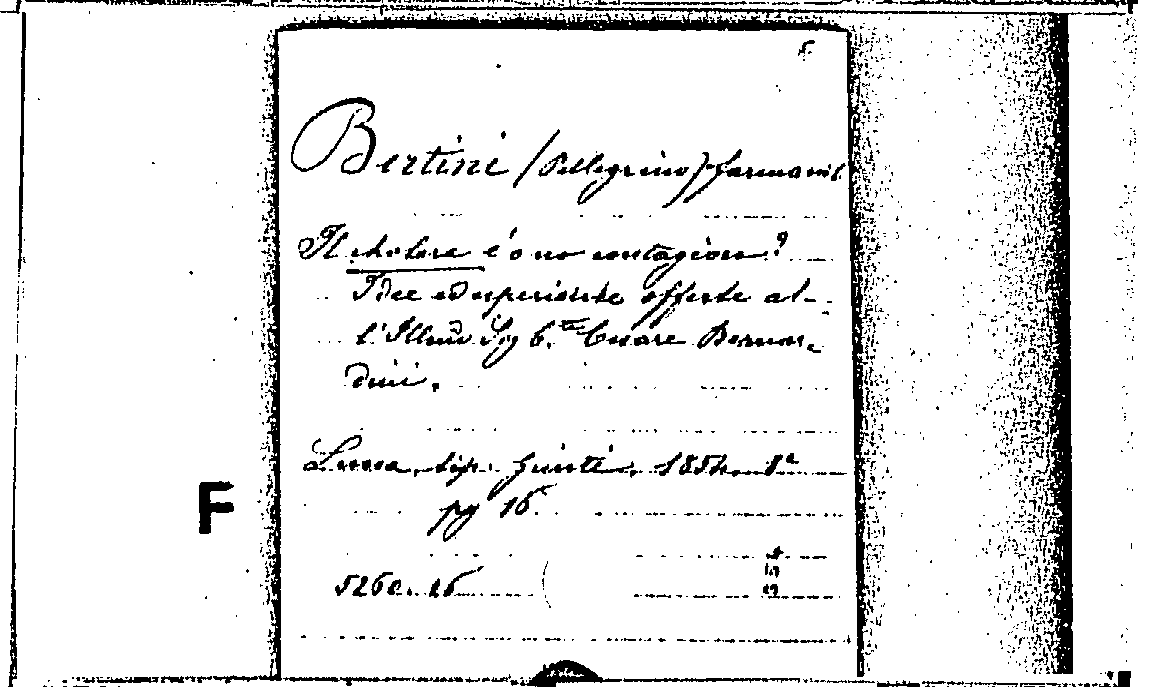 Bertini (Pellegrino) farmacist.
Il cholera è o no contagioso?
Idee ed esperienze offerte al-
l'Illmo Sig C.te Cesare Bernar-
dini.
Lucca, tip. Giusti, 1854. 8°
pg 16.
F
5260. 26